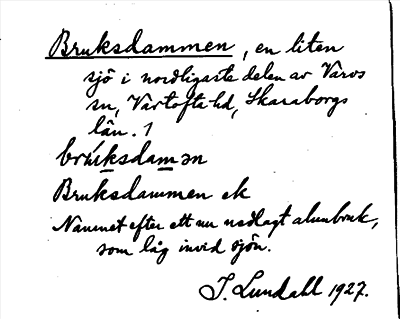 Bruksdammen, en liten
sjö i nordligaste delen av Varvs
sn, Vartofta hd, Skaraborgs
län. 1
brúksdamən
Bruksdammen ek
Namnet efter ett nu nedlagt alunbruk,
som låg invid sjön.
J. Lundahl 1927.